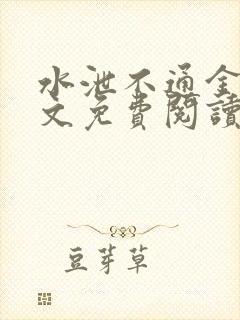 水泄不通全
文免費閱讀
豆芽草